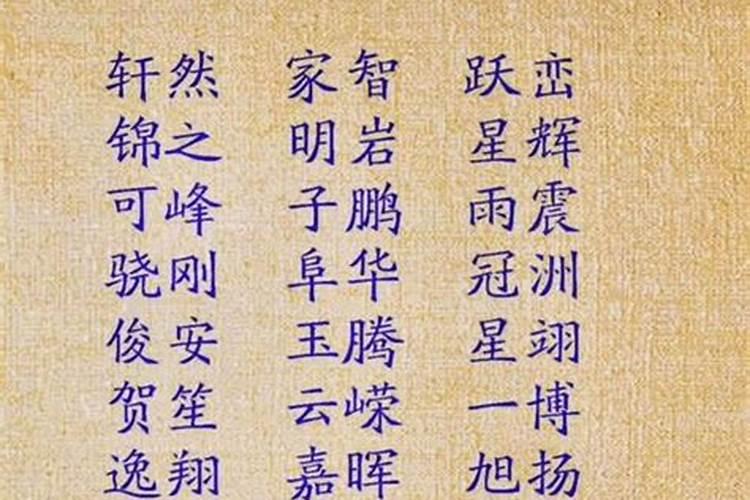 轩然 家智 跃峦
锦之 明岩 星辉
可峰 子鹏 雨震
骁刚 阜华 冠洲
俊安 玉腾 星翊
贺笙 云嵘 一博
逸翔 嘉晖 旭扬